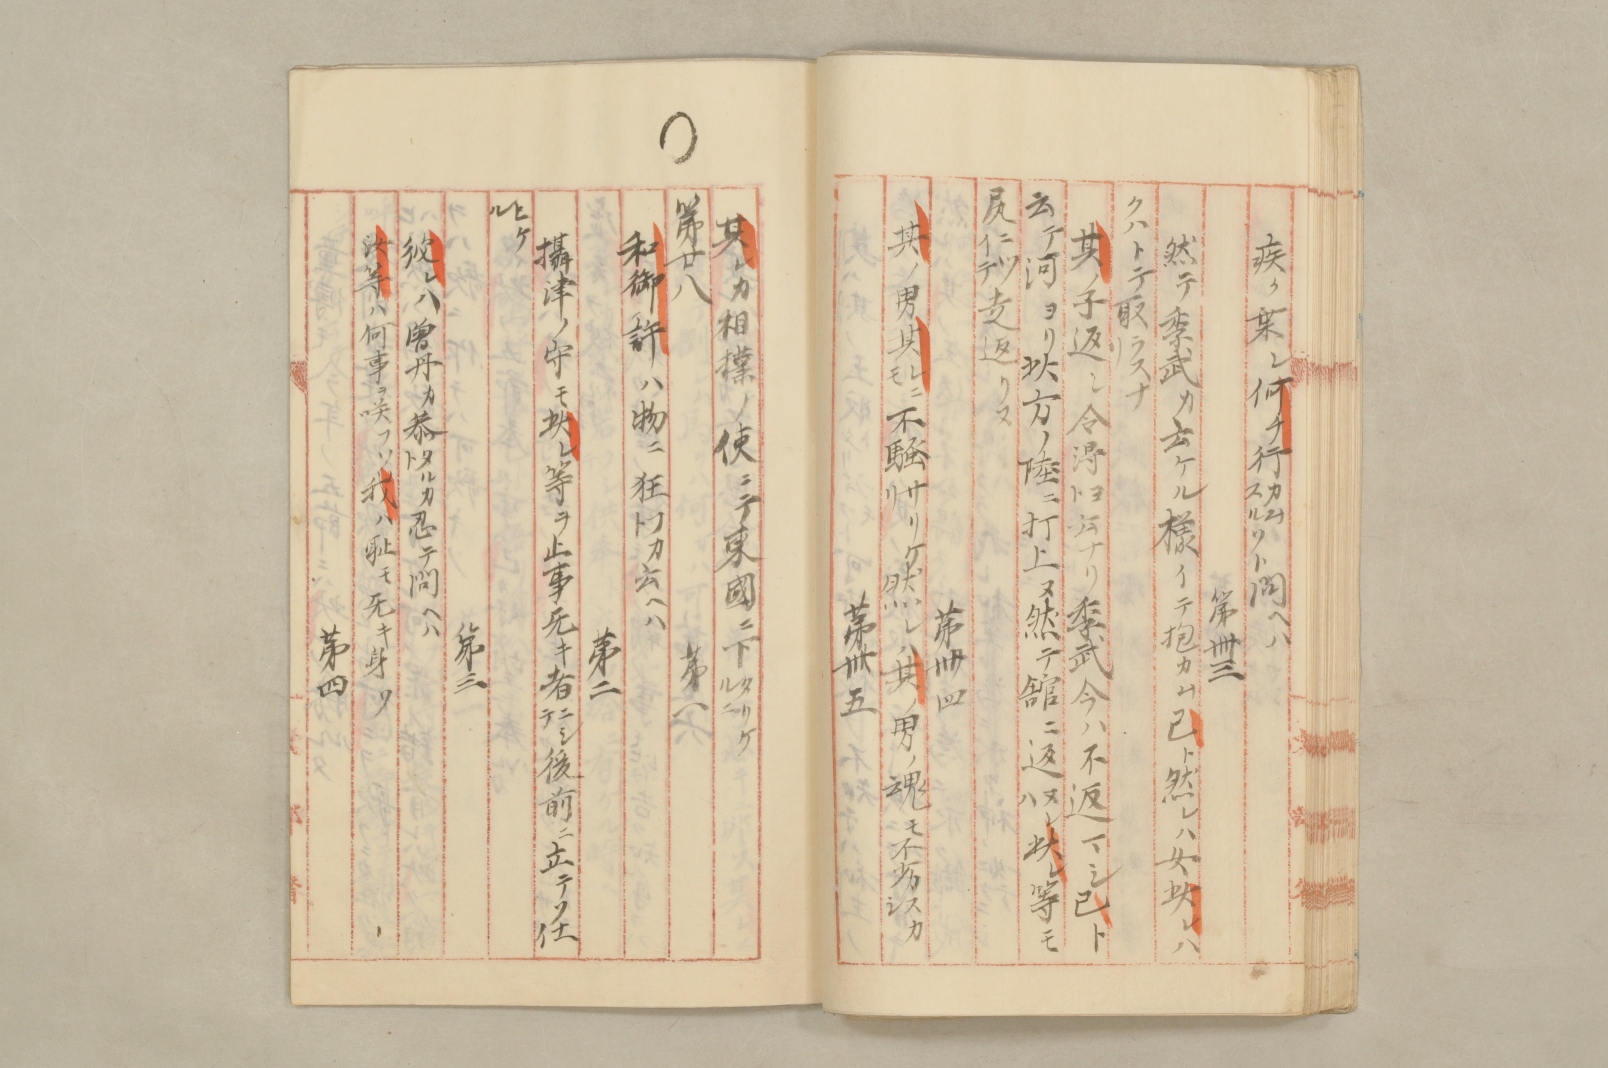 疾ク菓レ何チ行カムスルソト問ヘハ
第卅三
然テ季武カ云ケル様イテ抱カム己ト然レハ女此レハ
クハトテ取ラスナリ
其ノ子返シ令得ヨト云ナリ季武今ハ不返マシ己ト
云テ河ヨリ此方ノ陸ニ打上ヌ然テ館ニ返ヌレハ此レ等モ
尻ニツイテ走返リヌ
第卅四
其ノ男其レニモ不騒サリケリ然レハ其ノ男ノ魂モ不劣スカシ
第卅五
其レカ相撲ノ使ニテ東國ニ下タリケルニ
第廿八
第一
和御許ハ物ニ狂フカト云ヘハ
第二
攝津ノ守モ此レ等ヲ止事无キ者ニシテ後前ニ立テソ仕
ヒケル
第三
彼レハ曽丹カ恭タルカト忍テ問ヘハ
汝等ハ何事ヲ咲フソ我ハ恥モ无キ身ソ
第四